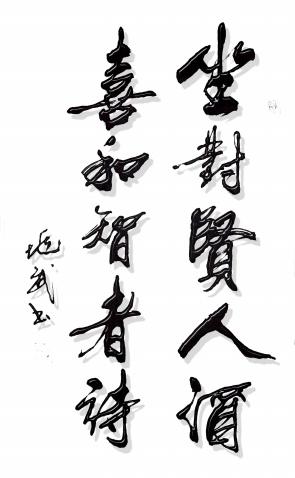 坐對賢人酒
喜和智者詩